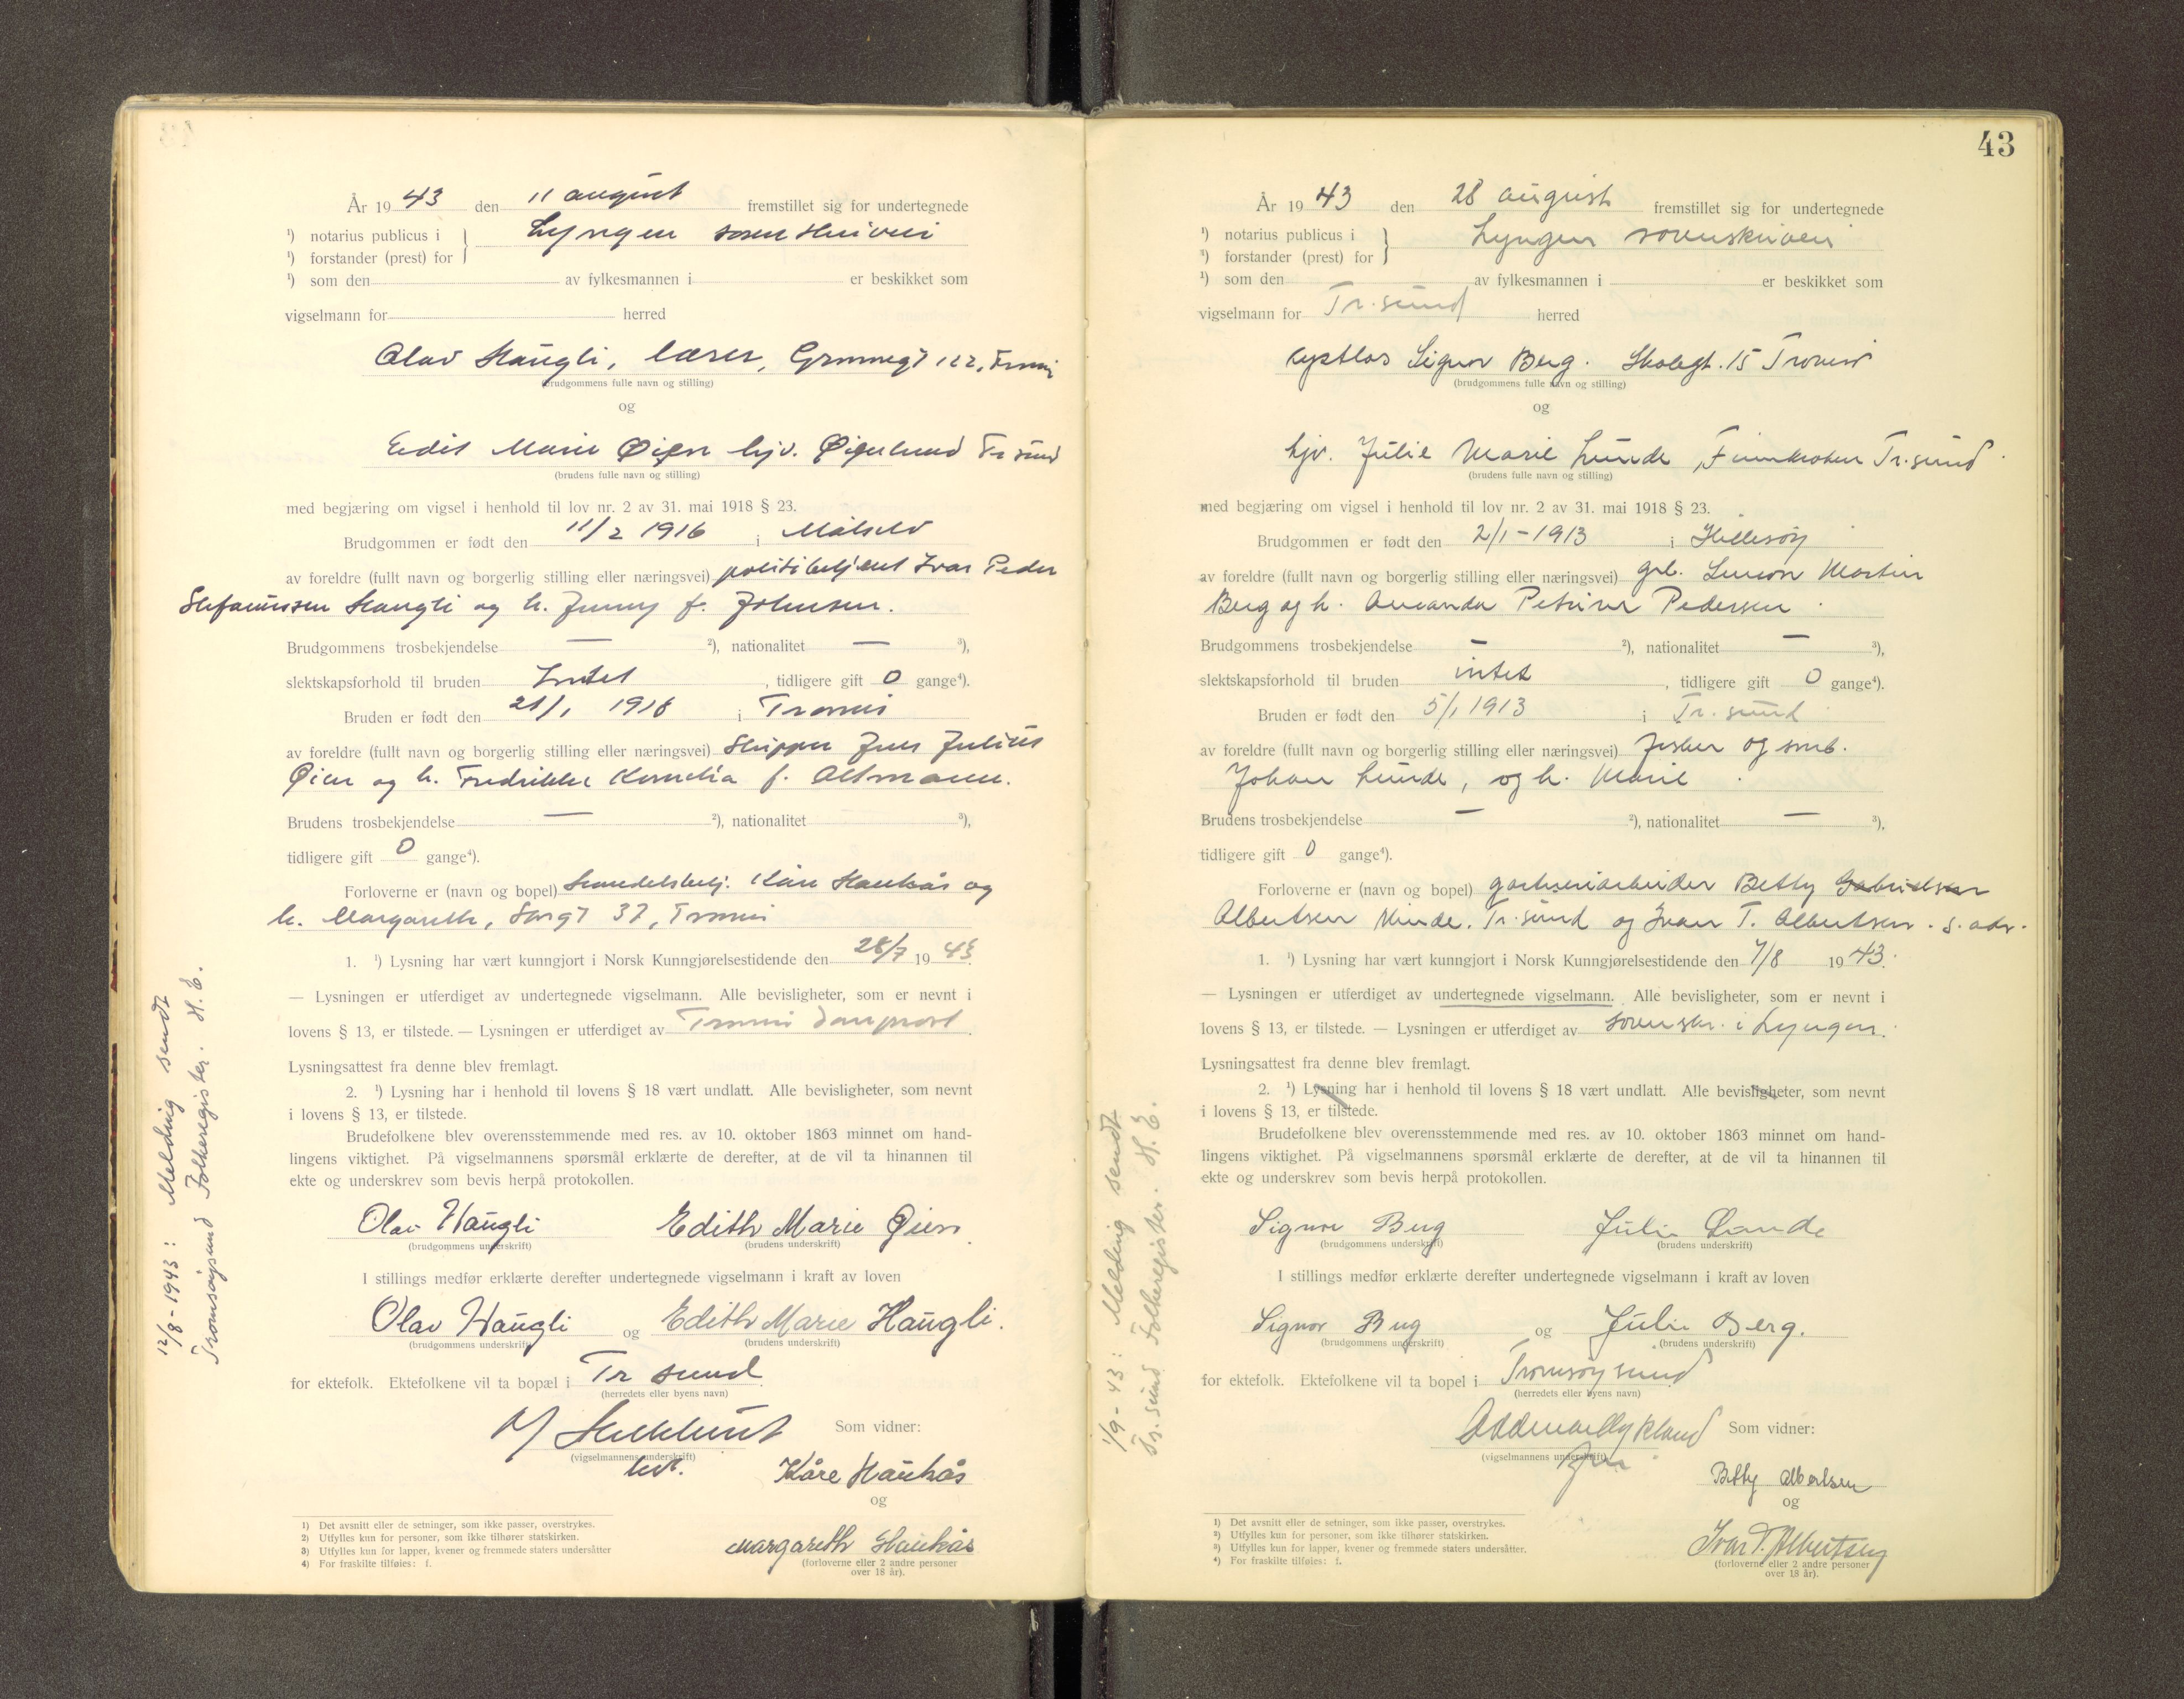 År 19 43 den 11 august fremstillet sig for undertegnede
¹) notarius publicus i
¹) forstander (prest) for
} Lyngen sorenskriveri
¹) som den av fylkesmannen i er beskikket som
vigselmann for herred
Olav Haugli, lærer, Grønnegt 122, Tromsø
(brudgommens fulle navn og stilling)
og
Edit Marie Øien hjv. Tr sund
(brudens fulle navn og stilling)
med begjæring om vigsel i henhold til lov nr. 2 av 31. mai 1918 § 23.
Brudgommen er født den 11/2 1916 i Målselv
av foreldre (fullt navn og borgerlig stilling eller næringsvei) politibetjent Ivar Peder
Stefanussen Haugli og h. Jenny f. Johnsen.
Brudgommens trosbekjendelse — ²), nationalitet — ³),
slektskapsforhold til bruden Intet , tidligere gift 0 gange⁴).
Bruden er født den 21/1 1916 i Tromsø
av foreldre (fullt navn og borgerlig stilling eller næringsvei) Skipper Jens Julius
Øien og h. Fredrikke Kornelia f. Altmann.
Brudens trosbekjendelse — ²), nationalitet ³),
tidligere gift 0 gange⁴).
Forloverne er (navn og bopel) handelsbetj. Kåre Haukås og
h. Margareth, Storgt 37, Tromsø
1. ¹) Lysning har vært kunngjort i Norsk Kunngjørelsestidende den 28/7 19 43.
— Lysningen er utferdiget av undertegnede vigselmann. Alle bevisligheter, som er nevnt i
lovens § 13, er tilstede. — Lysningen er utferdiget av Tromsø domprost.
Lysningsattest fra denne blev fremlagt.
2. ¹) Lysning har i henhold til lovens § 18 vært undlatt. Alle bevisligheter, som nevnt
i lovens § 13, er tilstede.
Brudefolkene blev overensstemmende med res. av 10. oktober 1863 minnet om hand-
lingens viktighet. På vigselmannens spørsmål erklærte de derefter, at de vil ta hinannen til
ekte og underskrev som bevis herpå protokollen.
Olav Haugli Edith Marie Øien
(brudgommens underskrift) (brudens underskrift)
I stillings medfør erklærte derefter undertegnede vigselmann i kraft av loven
Olav Haugli og Edith Marie Haugli.
(brudgommens underskrift) (brudens underskrift)
for ektefolk. Ektefolkene vil ta bopæl i Tr sund
(herredets eller byens navn)
Som vidner:
(vigselmannens underskrift)
Kåre Haukås
og
Margareth Haukås
(forloverne eller 2 andre personer
over 18 år).
1) Det avsnitt eller de setninger, som ikke passer, overstrykes.
2) Utfylles kun for personer, som ikke tilhører statskirken.
3) Utfylles kun for lapper, kvener og fremmede staters undersåtter
4) For fraskilte tilføies: f.
12/8-1943: Melding sendt
Tromsøysund Folkeregister. H.E.
43
År 19 43 den 28 august fremstillet sig for undertegnede
¹) notarius publicus i
¹) forstander (prest) for
} Lyngen sorenskriveri
¹) som den av fylkesmannen i er beskikket som
vigselmann for Tr.sund herred
Signor Berg. Skolegt. 15 Tromsø
(brudgommens fulle navn og stilling)
og
hjv. Julie Marie Lunde, Finnkroken Tr.sund.
(brudens fulle navn og stilling)
med begjæring om vigsel i henhold til lov nr. 2 av 31. mai 1918 § 23.
Brudgommen er født den 2/1-1913 i Hillesøy
av foreldre (fullt navn og borgerlig stilling eller næringsvei) Simon Martin
Berg og h. Amanda Petrine Pedersen.
Brudgommens trosbekjendelse — ²), nationalitet — ³),
slektskapsforhold til bruden intet , tidligere gift 0 gange⁴).
Bruden er født den 5/1 1913 i Tr.sund
av foreldre (fullt navn og borgerlig stilling eller næringsvei) fisker og smb.
Johan Lunde, og h. Marie.
Brudens trosbekjendelse — ²), nationalitet — ³),
tidligere gift 0 gange⁴).
Forloverne er (navn og bopel) gartneriarbeider Betty Gabrielsen
Albertsen Tr.sund og Ivar T. Albertsen. s. adr.
1. ¹) Lysning har vært kunngjort i Norsk Kunngjørelsestidende den 7/8 19 43.
— Lysningen er utferdiget av undertegnede vigselmann. Alle bevisligheter, som er nevnt i
lovens § 13, er tilstede. — Lysningen er utferdiget av sorenskr. i Lyngen.
Lysningsattest fra denne blev fremlagt.
2. ¹) Lysning har i henhold til lovens § 18 vært undlatt. Alle bevisligheter, som nevnt
i lovens § 13, er tilstede.
Brudefolkene blev overensstemmende med res. av 10. oktober 1863 minnet om hand-
lingens viktighet. På vigselmannens spørsmål erklærte de derefter, at de vil ta hinannen til
ekte og underskrev som bevis herpå protokollen.
Signor Berg Julie Lunde
(brudgommens underskrift) (brudens underskrift)
I stillings medfør erklærte derefter undertegnede vigselmann i kraft av loven
Signor Berg og Julie Berg.
(brudgommens underskrift) (brudens underskrift)
for ektefolk. Ektefolkene vil ta bopel i Tromsøysund
(herredets eller byens navn)
Som vidner:
(vigselmannens underskrift)
Betty Albertsen
og
Ivar T. Albertsen
(forloverne eller 2 andre personer
over 18 år).
1) Det avsnitt eller de setninger, som ikke passer, overstrykes.
2) Utfylles kun for personer, som ikke tilhører statskirken.
3) Utfylles kun for lapper, kvener og fremmede staters undersåtter.
4) For fraskilte tilføies: f.
1/9-43: Melding sendt
Tr.sund Folkeregister. H.E.